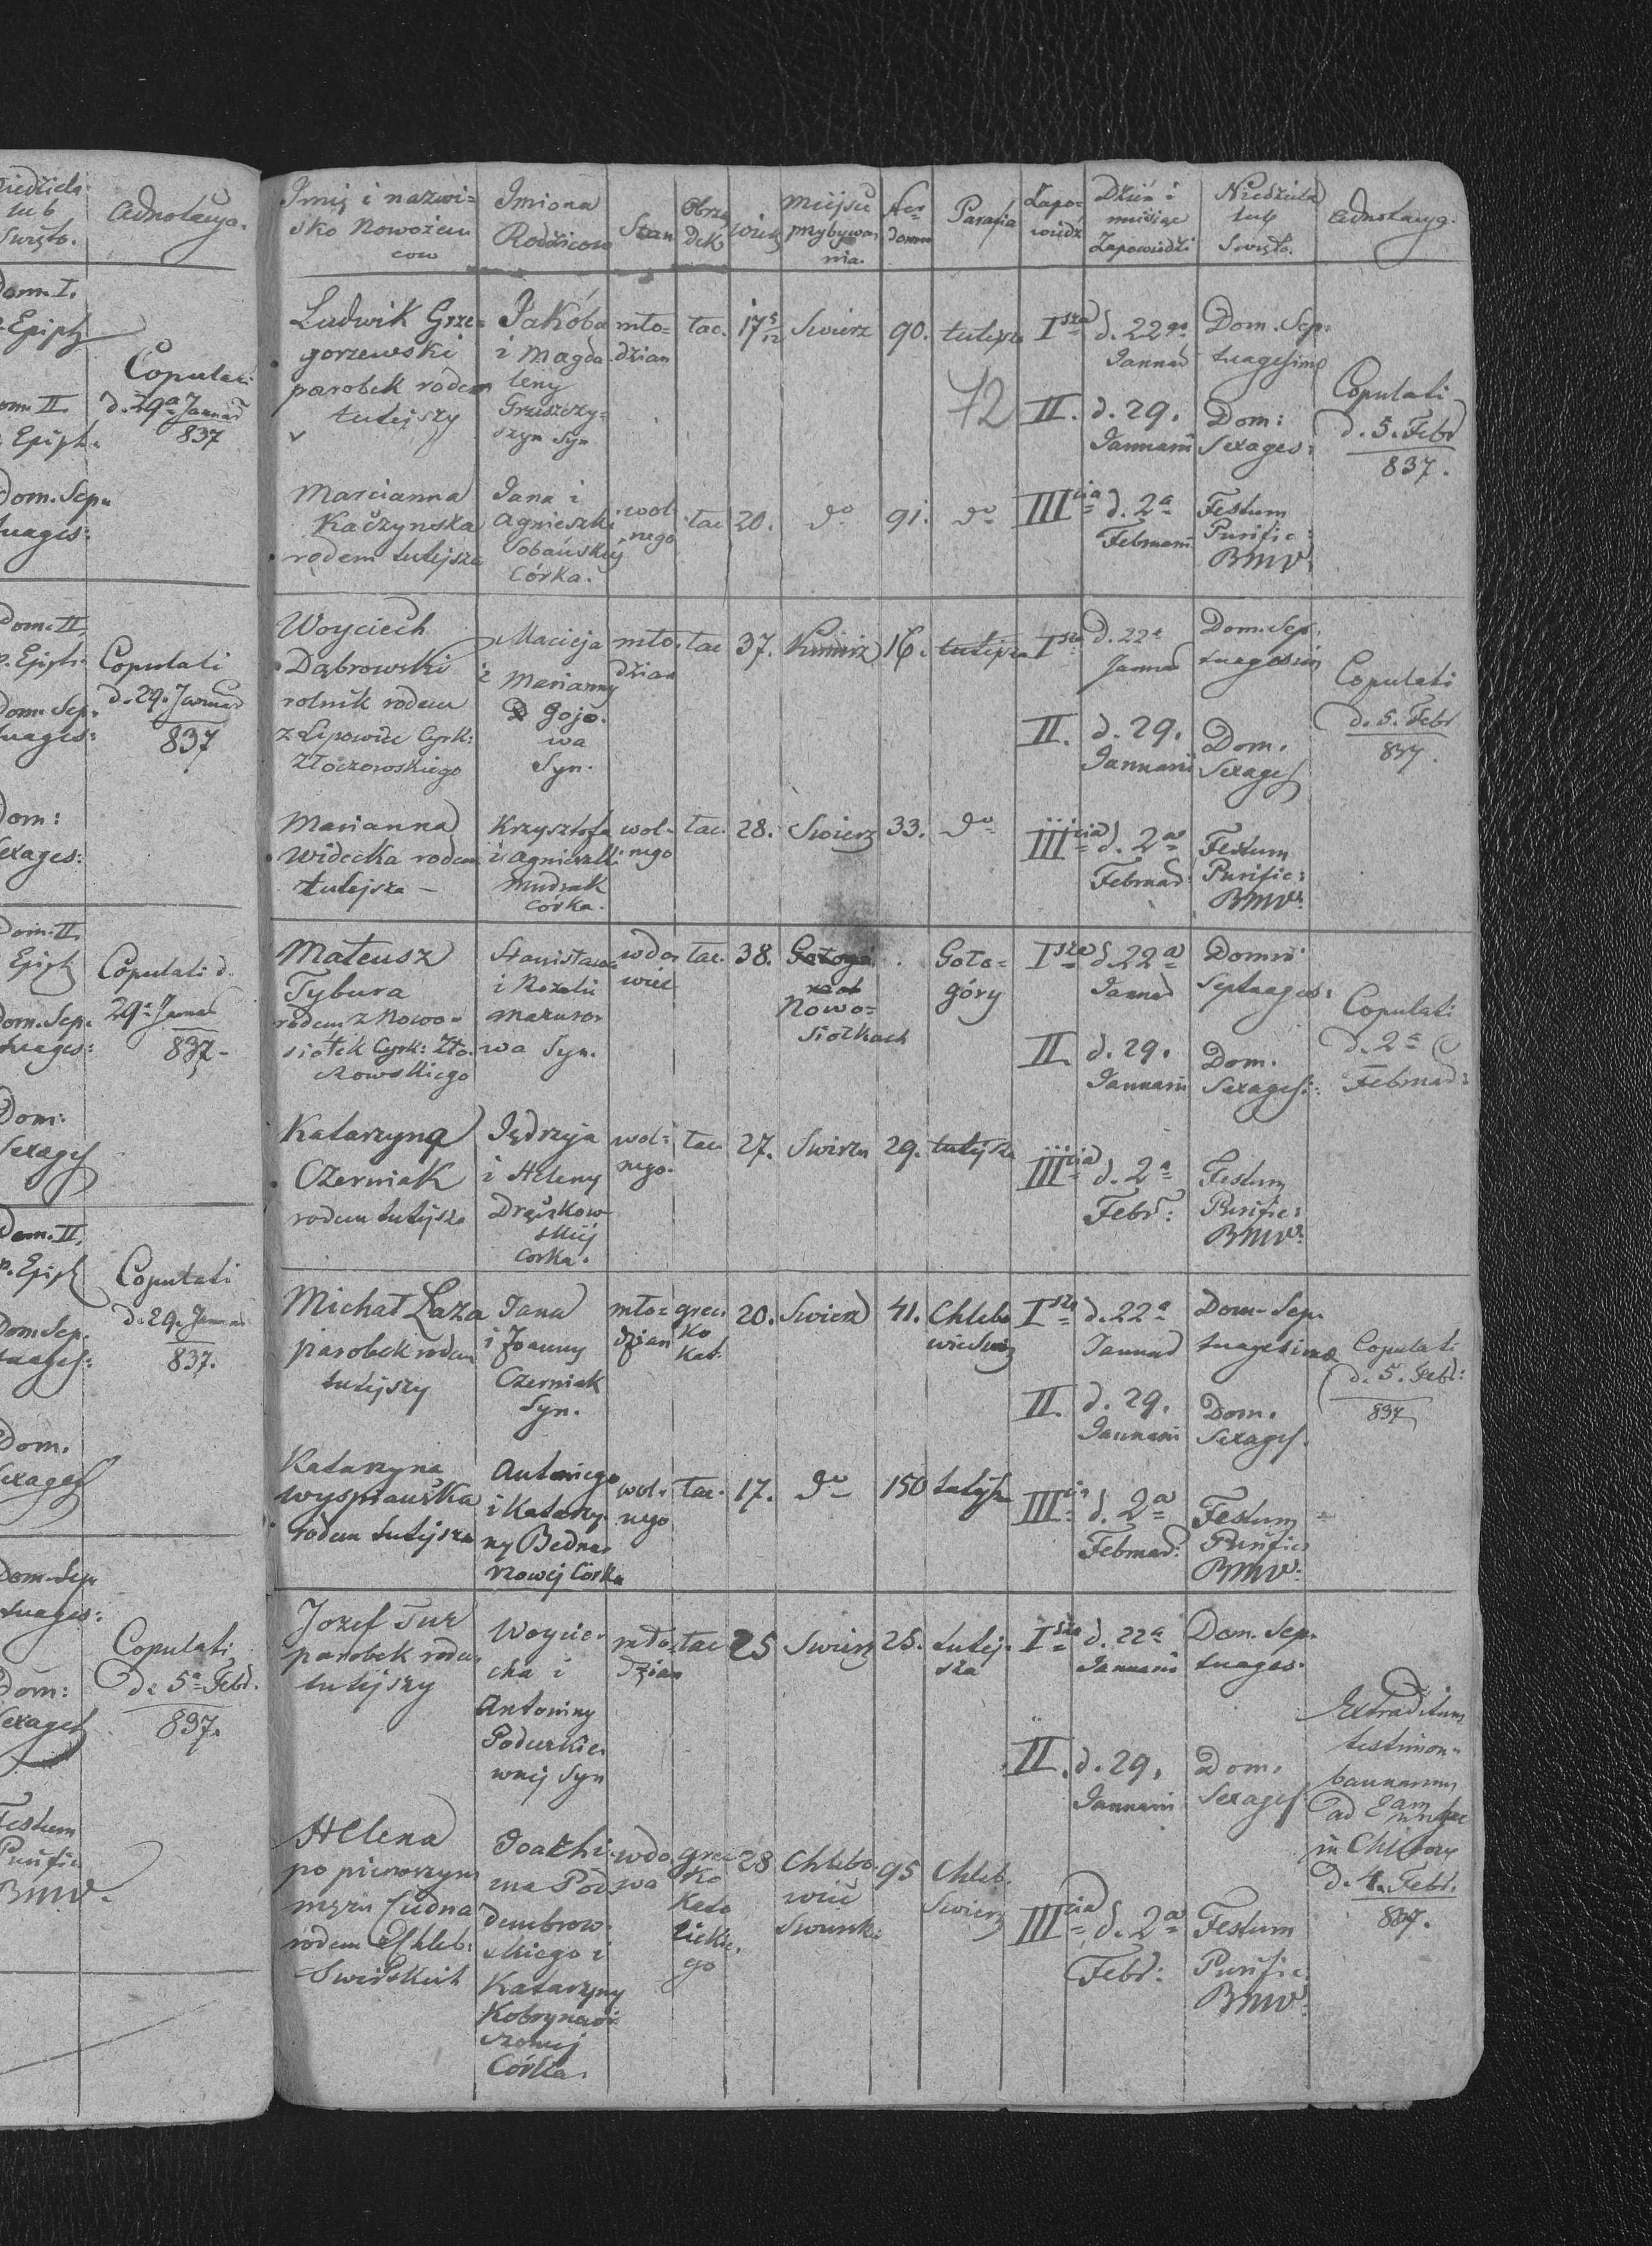 lub
Święto.
Adnotacya.
Dom. I.
Epiph
Copulati
d. 29a Januar
837
Dom. II.
Epiph.
Dom. Sep
tuages:
Dom. II
p. Epiph.
Copulati
d. 29. Januar
837
Dom. Sep.
tuages:
Dom:
Sexages:
Dom. II.
Epiph
Copulati d.
29a Januar
837
Dom. Sep.
tuages:
Dom:
Sexages
Dom. II.
p. Epiph
Copulati
d. 29. Januar
837.
Dom Sep.
tuages:
Dom.
Sexages
Dom. Sep
tuages:
Copulati
d. 5a Febr.
837.
Dom:
Sexages
Festum
Purific
BMV.
Imię i nazwi=
sko Nowożeń
cow
Imiona
Rodzicow
Stan
Obrzą
dek
wiek
miejsce
przybywa
nia.
Ner
domu
Parafia
Zapo=
wiedź
Dzień i
miesiąc
Zapowiedzi
Niedziela
lub
Święto.
Adnotacya.
Ludwik Grze=
gorzewski
parobek rodem
tutejszy
Jakóba
i Magda
leny
syn
mło=
dzian
łac.
17 5/12
Swierz
90.
tutejsza
Isza
d. 22go
Januar
Dom. Sep=
tuagesima
72
II.
d. 29.
Januarii
Dom:
Sexages:
Copulati
d. 5. Febr
837.
Marcianna
Kaczynska
rodem tutejsza
Jana i
Agnieszki
Sobańskiej
Córka.
wol=
nego
łac
20.
do
91.
do
IIIcia
d. 2a
Februarii
Festum
Purific:
BMV.
Woyciech
Dąbrowski
rolnik rodem
z Lipowiec Cyrk:
Złoczowskiego
Macieja
i Marianny
Gojo=
wa
Syn.
mło=
dzian
łac
37.
16.
tutejsza
Isza
d. 22a
Januar
Dom. Sep.
tuagesim
II.
d. 29.
Januarii
Dom.
Sexages
Copulati
d. 5. Febr
837.
Marianna
Widecka rodem
tutejsza –
Krzysztofa
i Agnieszki
Mudrak
córka.
wol=
nego
łac.
28.
Swierz
33.
do
IIIcia
d. 2a
Februar
Festum
Purific:
BMV.
Mateusz
Tybura
rodem z Nowo=
siołek Cyrk: Zło=
czowskiego
Stanisława
i Rozalii
Mazuro=
wa Syn.
wdo=
wiec
łac.
38.
Nowo=
siołkach
Goło=
góry
Isza
d. 22a
Januar
Domin
Septuages:
II.
d. 29.
Januarii
Dom.
Sexages:
Copulati
d. 2a
Februar:
Katarzyna
Czerniak
rodem tutejsza
Jędrzeja
i Heleny
Drączkow
skiej
corka.
wol=
nego.
łac
27.
Swirzu
29.
tutejsza
IIIcia
d. 2a
Febr:
Festum
Purific:
BMV.
Michał Laza
parobek rodem
tutejszy
Jana
i Joanny
Czerniak
Syn.
mło=
dzian
grec.
ko
kat.
20.
Swierz
41.
Chlebo
wic
Isza
d. 22a
Januar
Dom. Sep.
tuagesima
II.
d. 29.
Januarii
Dom.
Sexages.
Copulati
d. 5. Febr:
837
Katarzyna
Wyspiańska
rodem tutejsza
Antoniego
i Katarzy
ny Bedna=
rzowej Córka
wol=
nego
łac.
17.
do
150
tutejsza
IIIcia
d. 2a
Februar:
Festum
Purific
BMV.
Jozef Tur
parobek rodem
tutejszy
Woycie=
cha i
Antoniny
Podurkie=
wnej Syn
mło=
dzian
łac
25
Swierz
25.
tutej=
sza
Isza
d. 22a
Januarii
Dom. Sep.
tuages.
II.
d. 29.
Januarii
Dom.
Sexages
Extraditum
testimon.
bannorum
ad
in
d. 4. Febr.
837.
Helena
po pierwszym
mężu Cudna
rodem Chleb:
Swirskich
Joachi=
ma Pod
dembrow=
skiego i
Katarzyny
Córka.
wdo=
wa
grec
ko
kato
lickie=
go
28
Chlebo=
wic
Swirski
95
Chleb.
Swierz
IIIcia
d. 2a
Febr:
Festum
Purific.
BMV.